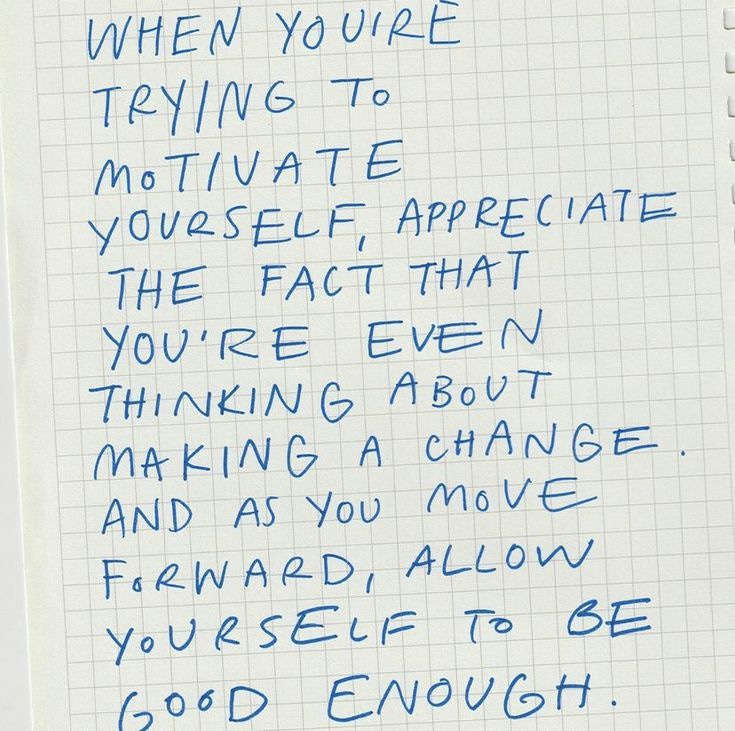 WHEN YOU'RE
TRYING TO
MOTIVATE
YOURSELF, APPRECIATE
THE FACT THAT
YOU'RE EVEN
THINKING ABOUT
MAKING A CHANGE.
AND AS YOU MOVE
FORWARD, ALLOW
YOURSELF TO BE
GOOD ENOUGH.